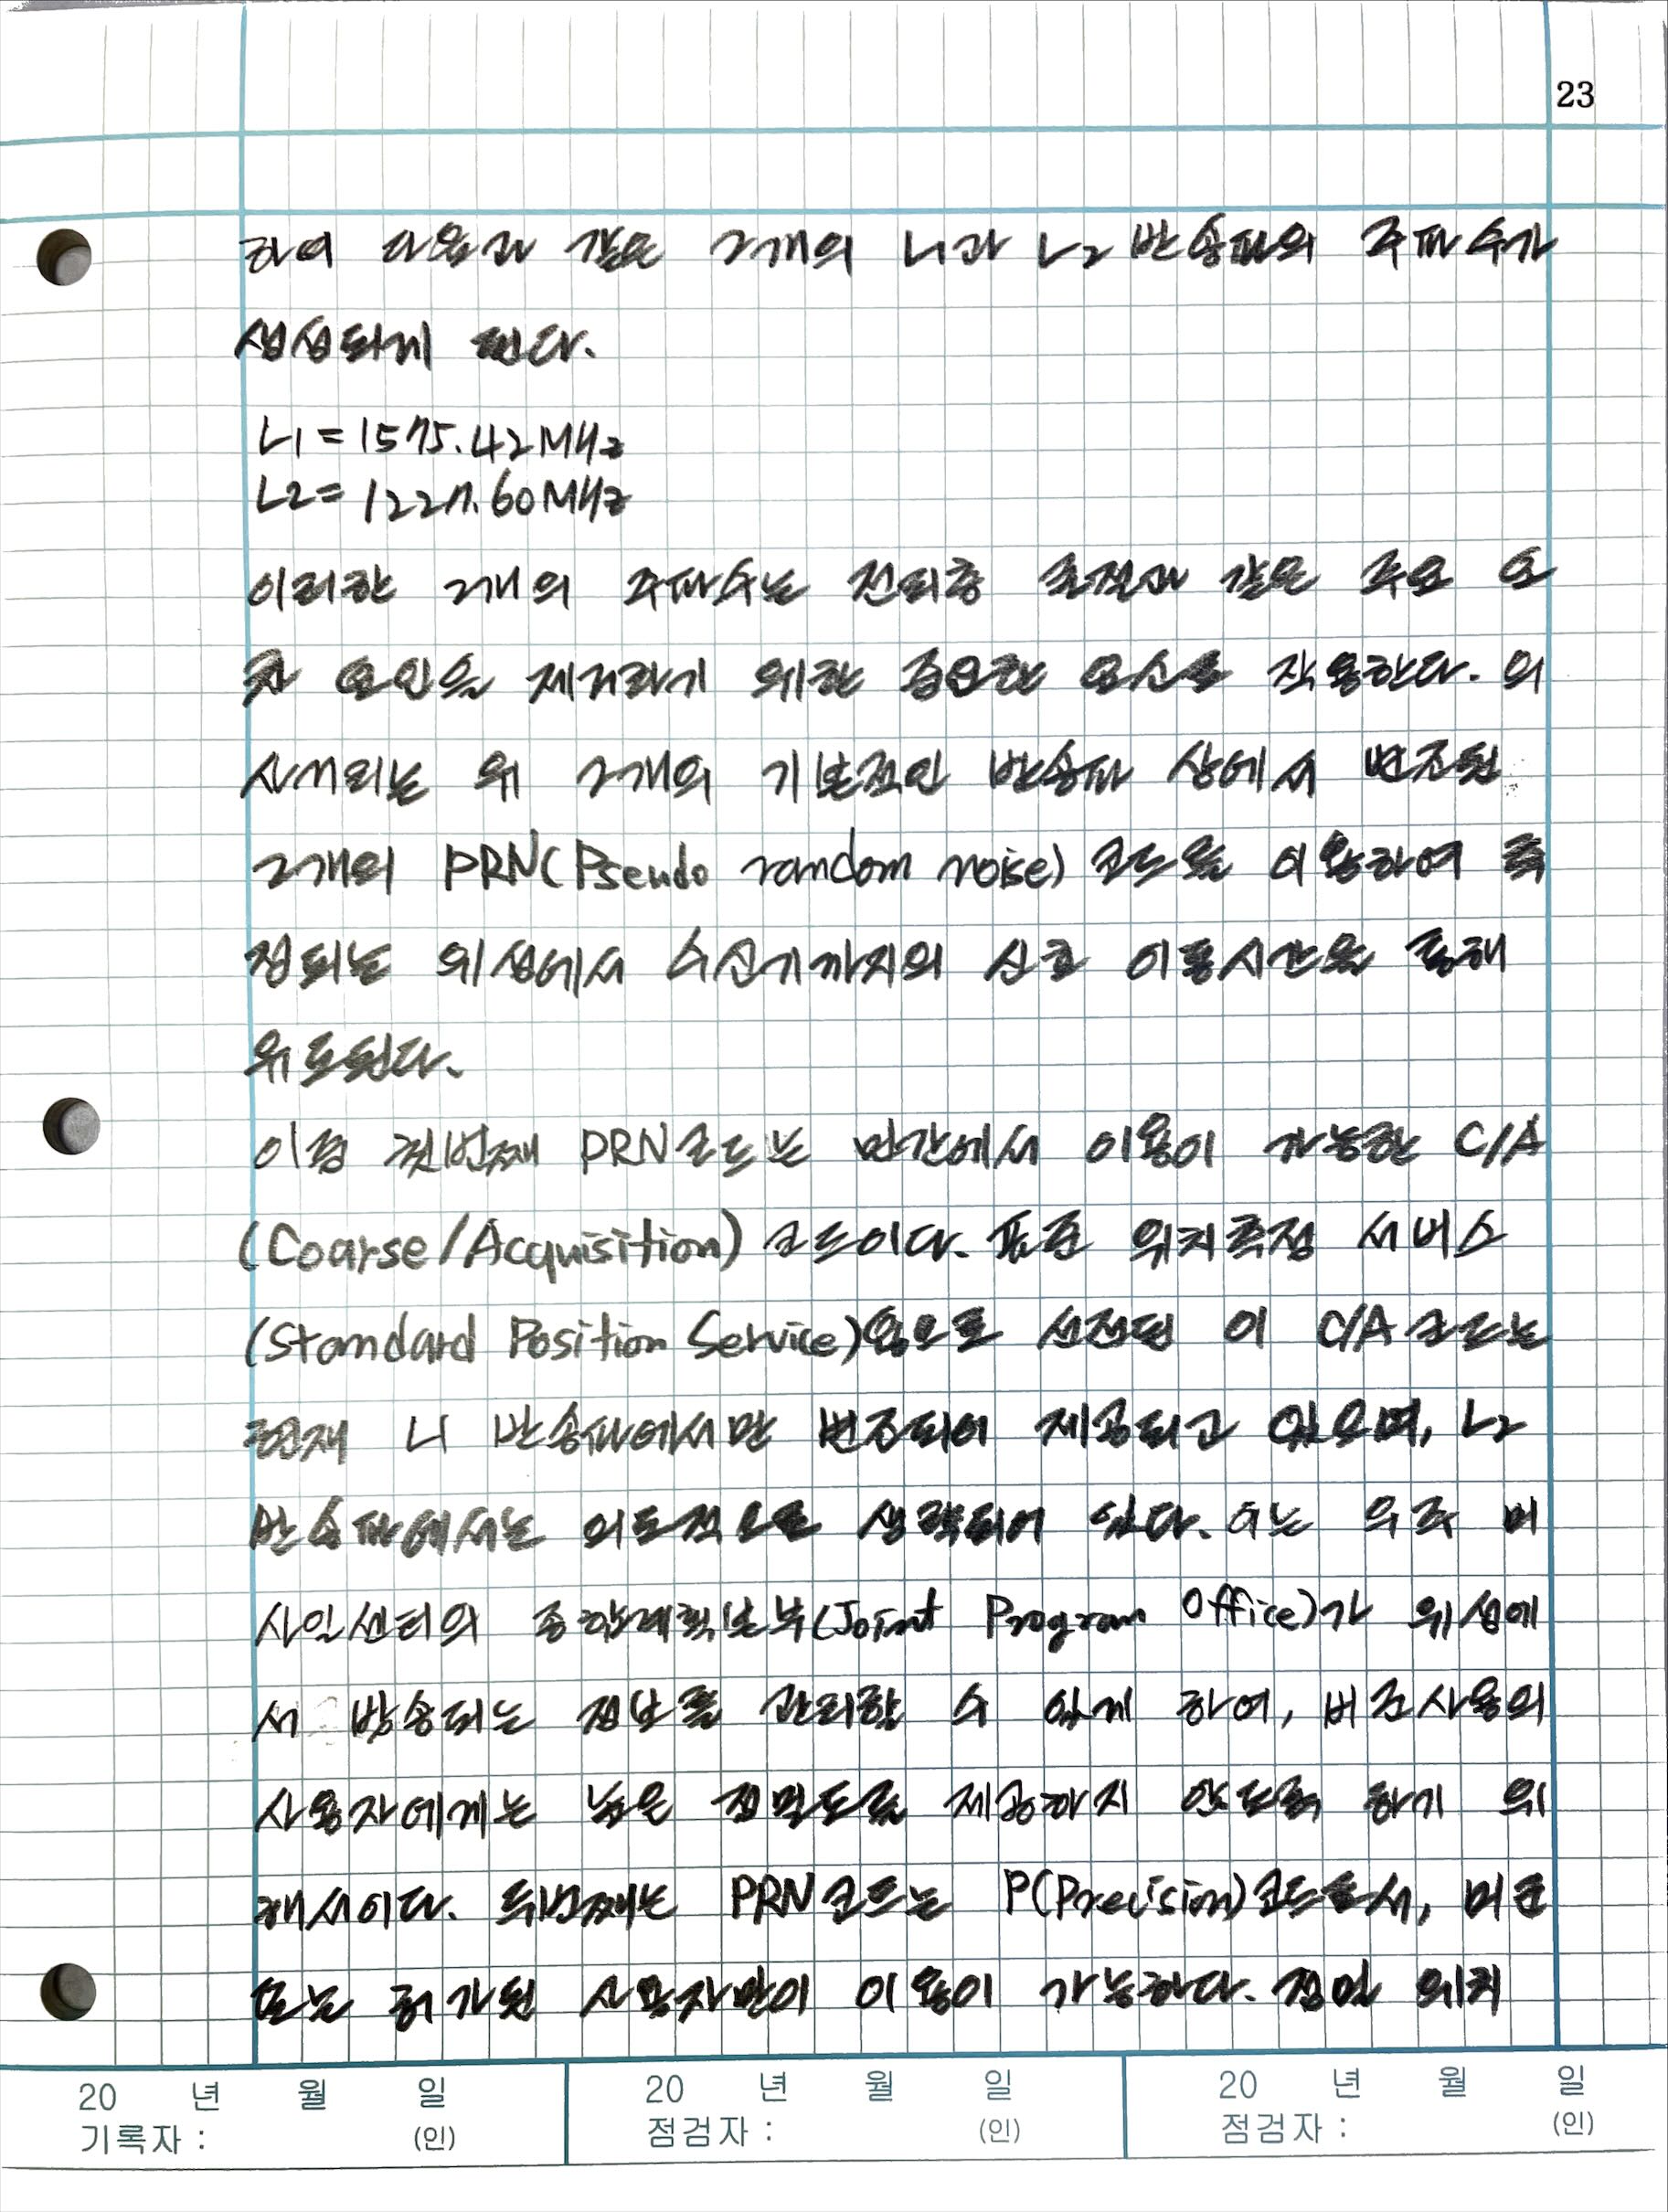 23
하여 다음과 같은 2개의 L1과 L2 반송파의 주파수가
생성되게 된다.
L1 = 1575.42MHz
L2 = 1227.60MHz
이러한 2개의 주파수는 전리층 굴절과 같은 주요 오
차 요인을 제거하기 위한 중요한 요소로 작용한다. 의
사거리는 위 2개의 기본적인 반송파 상에서 변조된
2개의 PRN(Pseudo random noise) 코드를 이용하여 측
정되는 위성에서 수신기까지의 신호 이동시간을 통해
유도된다.
이중 첫번째 PRN코드는 민간에서 이용이 가능한 C/A
(Coarse/Acquisition) 코드이다. 표준 위치측정 서비스
(Standard Position Service)용으로 선정된 이 C/A 코드는
현재 L1 반송파에서만 변조되어 제공되고 있으며, L2
반송파에서는 의도적으로 생략되어 있다. 이는 우주 미
사일센터의 종합계획본부(Joint Program Office)가 위성에
서 방송되는 정보를 관리할 수 있게 하여, 비군사용의
사용자에게는 높은 정밀도를 제공하지 않도록 하기 위
해서이다. 두번째는 PRN코드는 P(Precision)코드로서, 미군
또는 허가된 사용자만이 이용이 가능하다. 정밀 위치
20 년 월 일 20 년 월 일 20 년 월 일
기록자 : (인) 점검자 : (인) 점검자 : (인)